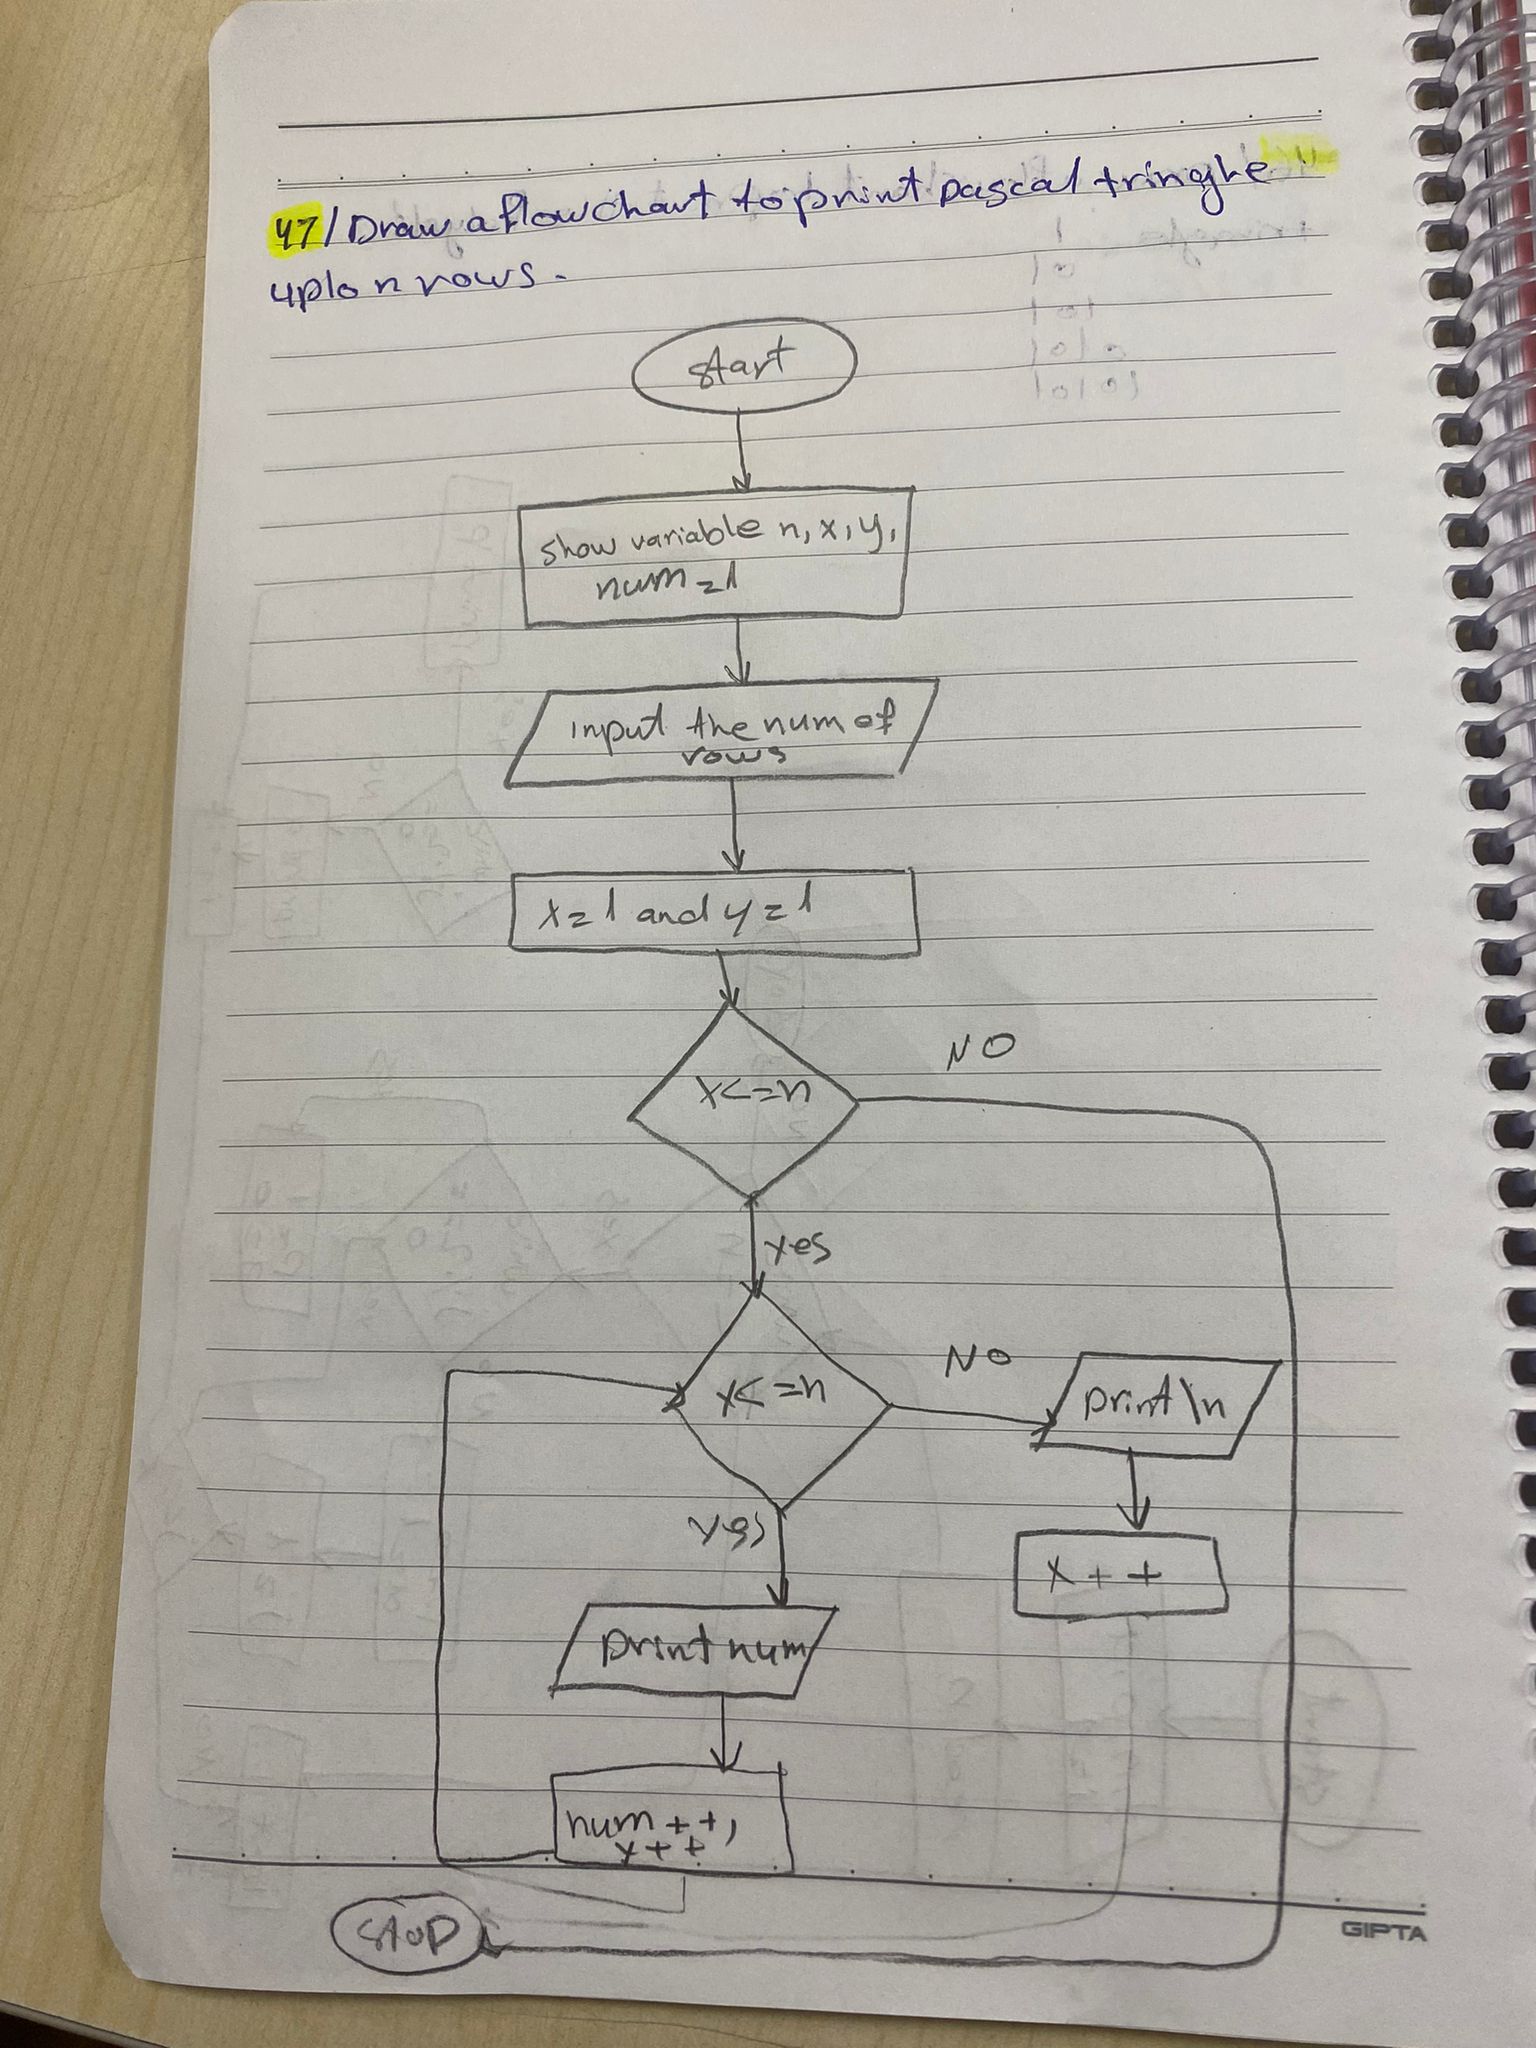 47/ Draw a flowchart to print pascal tringhe
upto n rows.
start
show variable n, x, y,
num=1
input the num of
rows
x=1 and y=1
x<=n
NO
yes
x<=n
NO
print \n
yes
x++
print num
num++,
y++
stop
GIPTA